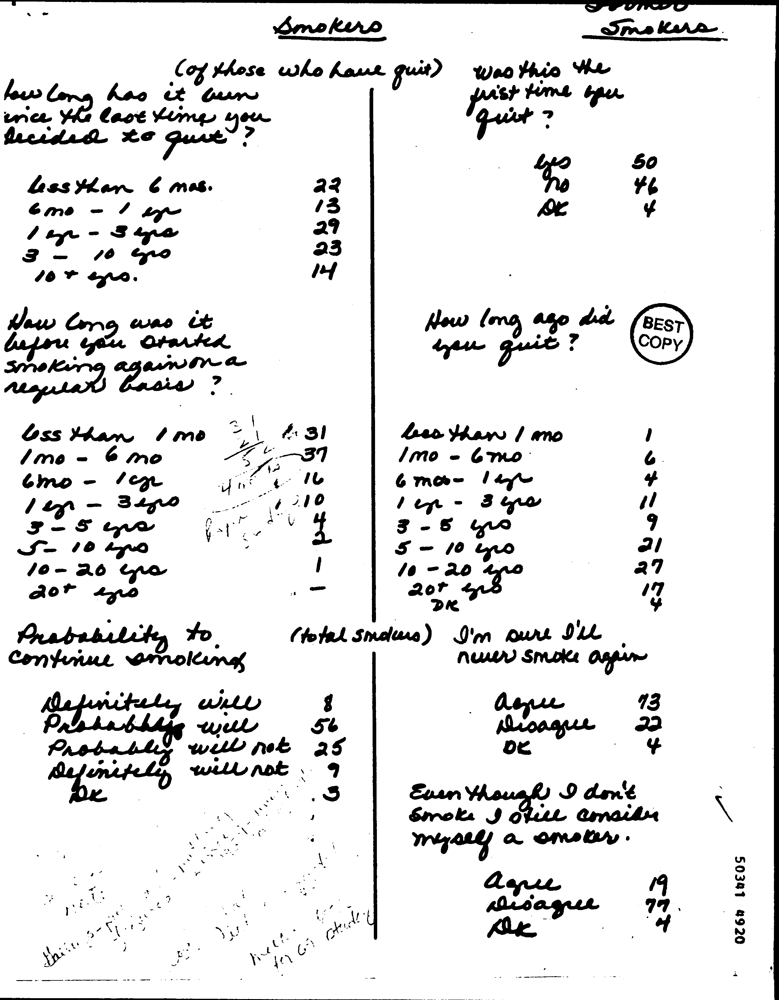 Smokers
Former
Smokers
(of those who have quit)
How long has it been
since the last time you
decided to quit?
less than 6 mos. 22
6mo - 1 yr 13
1 yr - 3 yrs 29
3 - 10 yrs 23
10 + yrs. 14
How long was it
before you started
smoking again on a
regular basis ?
less than 1 mo 31
1mo - 6 mo 37
6mo - 1 yr 16
1 yr - 3 yrs 10
3 - 5 yrs 4
5 - 10 yrs 2
10 - 20 yrs 1
20+ yrs -
31
21
52
Probability to
continue smoking
(total smokers)
Definitely will 8
Probably will 56
Probably will not 25
Definitely will not 9
DK 3
for 69 study
Was this the
first time you
quit ?
Yes 50
No 46
DK 4
How long ago did
you quit ?
BEST
COPY
less than 1 mo 1
1mo - 6mo 6
6 mos - 1 yr 4
1 yr - 3 yrs 11
3 - 5 yrs 9
5 - 10 yrs 21
10 - 20 yrs 27
20+ yrs 17
DK 4
I'm sure I'll
never smoke again
Agree 73
Disagree 22
DK 4
Even though I don't
smoke I still consider
myself a smoker.
Agree 19
Disagree 77
DK 4
50341 4920